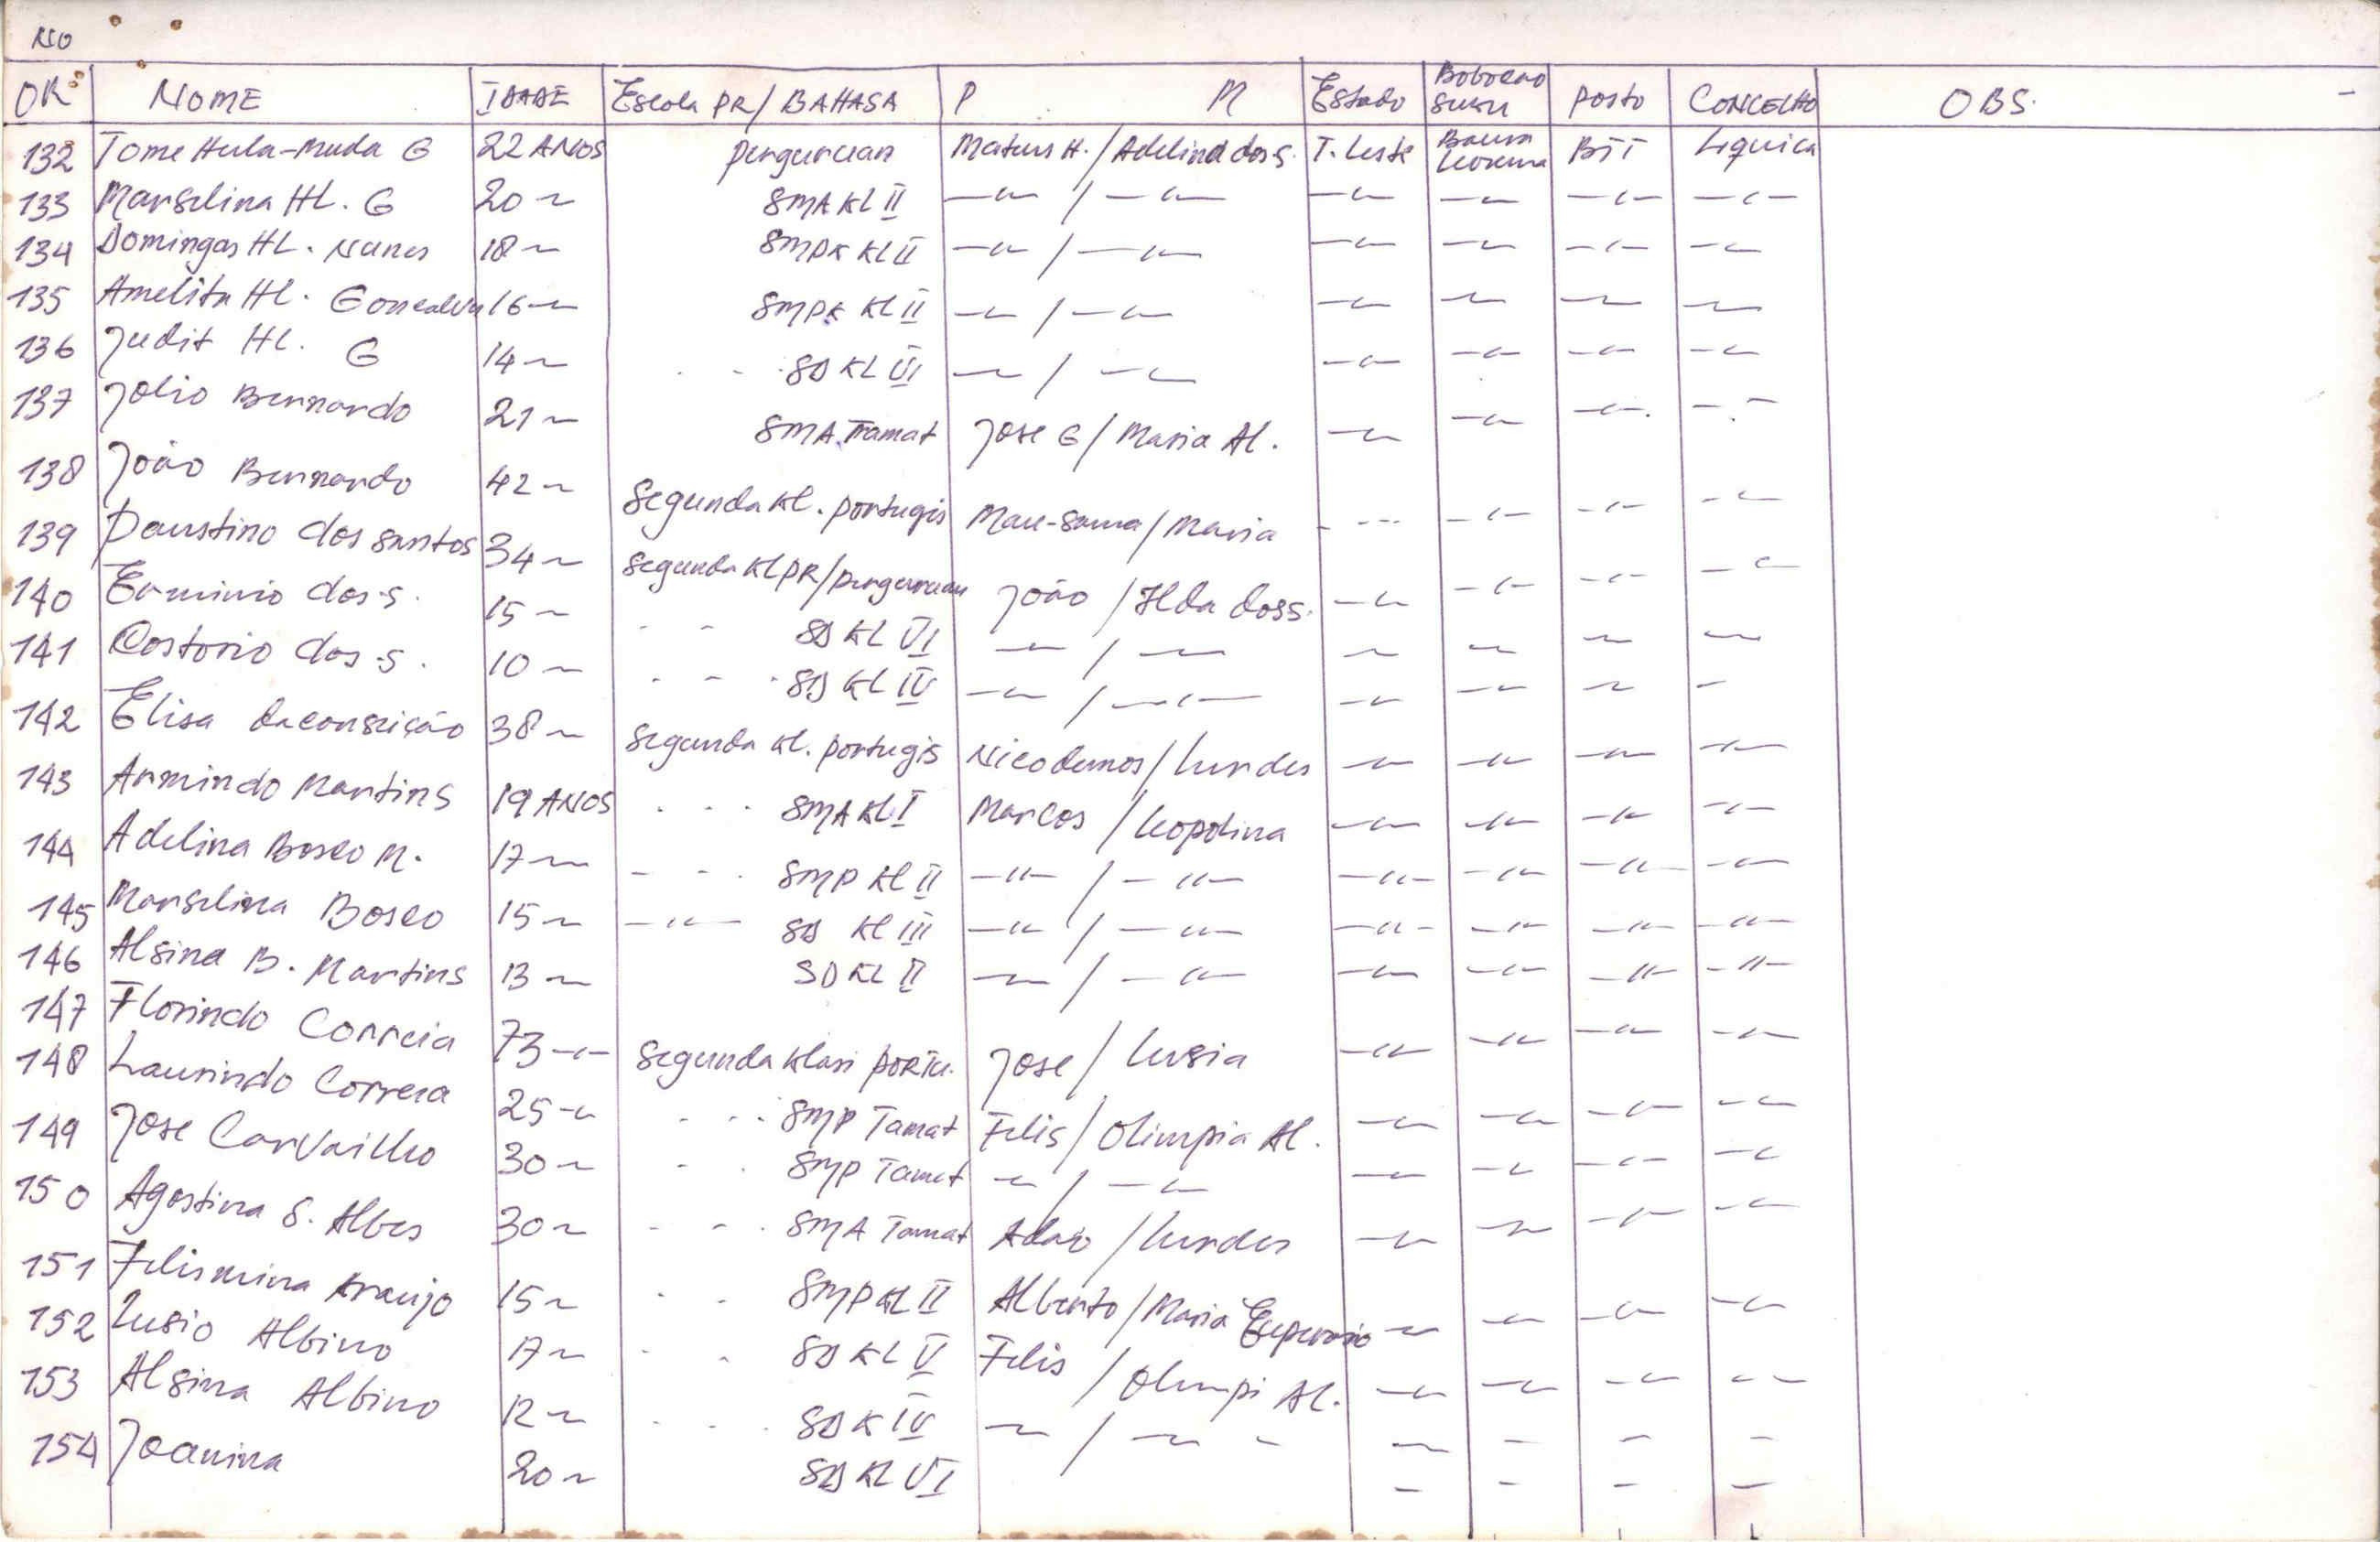 NO
OR: NOME IDADE Escola PR/ BAHASA P M Estado Posto CONCELHO OBS. -
132 Tome Hula-Muda G 22 ANOS Mateus H. / Adelina dos s. T. Leste BTT Liquica
133 Marselina HL. G 20 ~ SMA KL II —〃— / —〃— —〃— —〃— —〃— —〃—
134 Domingas HL. Nunes 18 ~ SMPK KL II —〃— / —〃— —〃— —〃— —〃— —〃—
135 Amelita HL. Goncalves 16 ~ SMPK KL II —〃— / —〃— —〃— —〃— —〃— —〃—
136 Judit HL. G 14 ~ - - - SD KL VI —〃— / —〃— —〃— —〃— —〃— —〃—
137 Jolio Bernardo 21 ~ SMA Tamat Jose G / Maria Al. —〃— —〃— —〃— —〃—
138 João Bernardo 42 ~ Segunda Kl. portugis Mau-Sama / Maria - --- —〃— —〃— —〃—
139 Daustino dos santos 34 ~ Segunda KL PR/ João / Ilda dos s. —〃— —〃— —〃— —〃—
140 Erminio dos s. 15 ~ - - SD KL VI —〃— / —〃— —〃— —〃— —〃— —〃—
141 Costorio dos s. 10 ~ - - - SD KL IV —〃— / —〃— —〃— —〃— —〃— —
142 Elisa daconseição 38 ~ Segunda Kl. portugis Nicodemos / Lurdes —〃— —〃— —〃— —〃—
143 Armindo Martins 19 ANOS - - - SMA KL I Marcos / Leopolina —〃— —〃— —〃— —〃—
144 Adelina Bosco M. 17 ~ - - - SMP KL II —〃— / —〃— —〃— —〃— —〃— —〃—
145 Marselina Bosco 15 ~ —〃— SD KL III —〃— / —〃— —〃— —〃— —〃— —〃—
146 Alsina B. Martins 13 ~ SD KL II —〃— / —〃— —〃— —〃— —〃— —〃—
147 Florindo Correia 73 —〃— Segunda klasi portu. Jose / Lusia —〃— —〃— —〃— —〃—
148 Laurindo Correia 25 —〃 - - - SMP Tamat Felis / Olimpia Al. —〃— —〃— —〃— —〃—
149 Jose Carvailho 30 ~ - - SMP Tamat —〃— / —〃— —〃— —〃— —〃— —〃—
150 Agostina S. Albes 30 ~ - - - SMA Tamat Adão / Lurdes —〃— —〃— —〃— —〃—
151 Felismina Araujo 15 ~ - - SMP KL II Alberto / Maria —〃— —〃— —〃— —〃—
152 Lusio Albino 17 ~ - - SD KL V Felis / Olimpi Al. —〃— —〃— —〃— — —
153 Alsina Albino 12 ~ - - - SD K IV —〃— / —〃— - —〃— — — —
154 Joanina 20 ~ SD KL VI — — — —